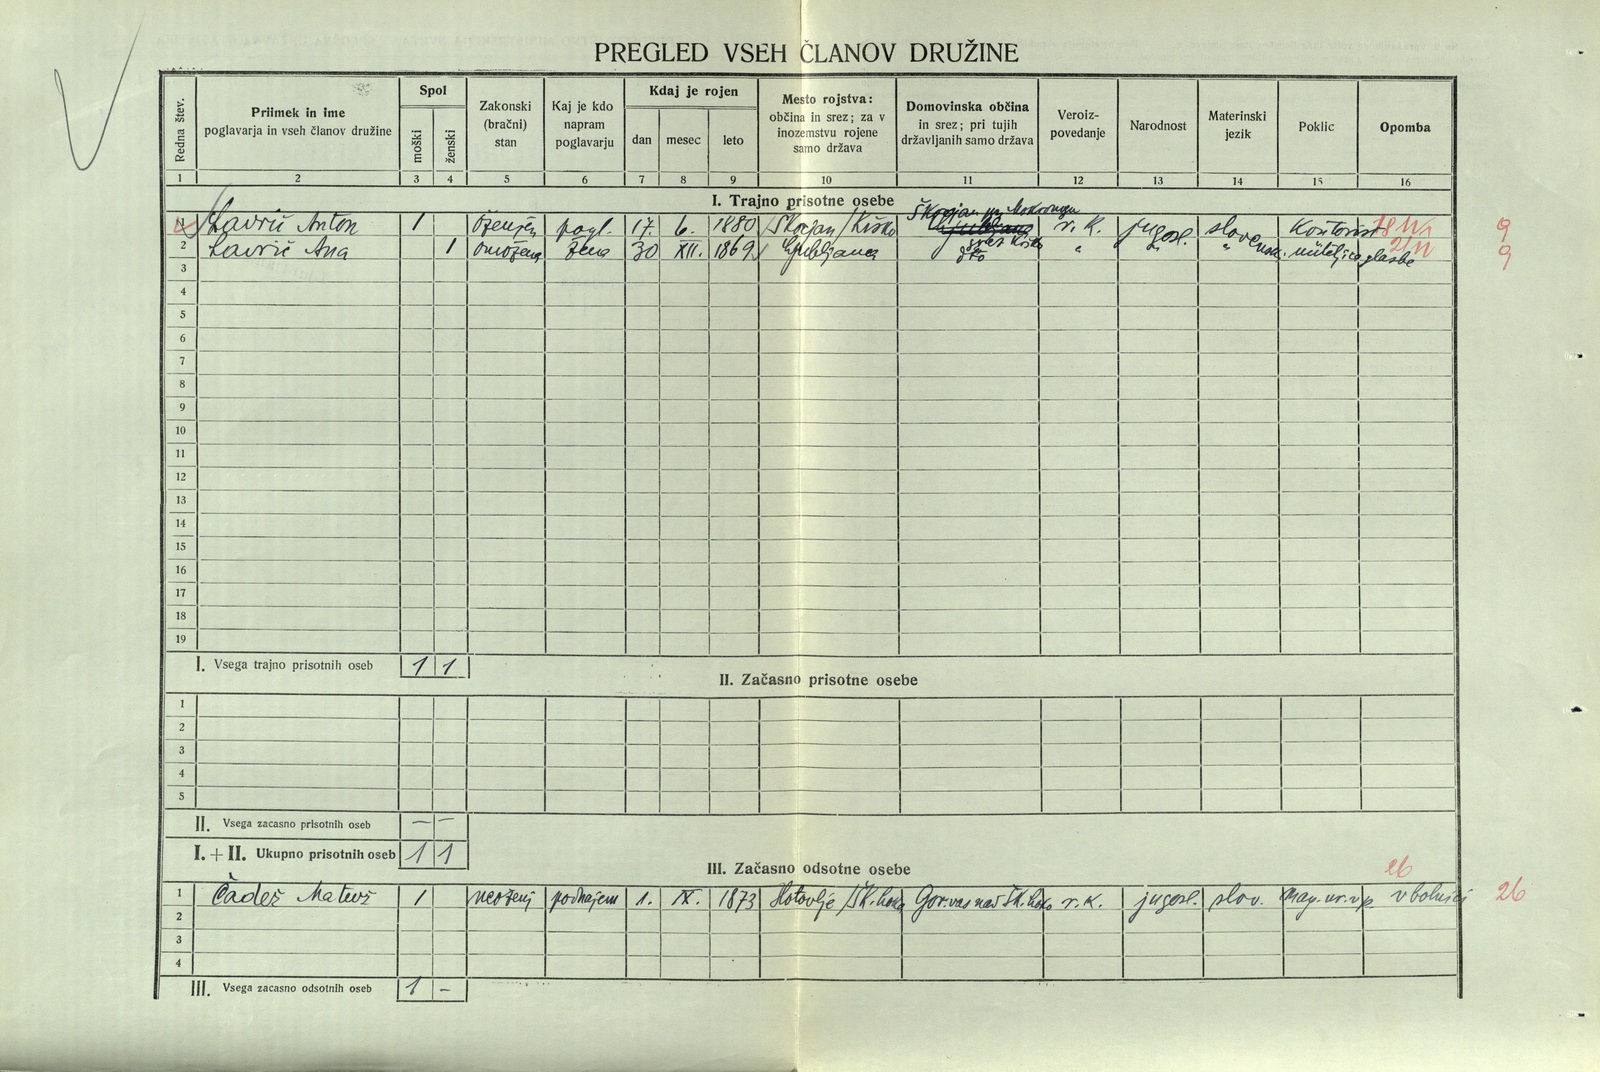 PREGLED VSEH ČLANOV DRUŽINE
Redna štev. Priimek in ime poglavarja in vseh članov družine Spol moški ženski Zakonski (bračni) stan Kaj je kdo napram poglavarju Kdaj je rojen dan mesec leto Mesto rojstva: občina in srez; za v inozemstvu rojene samo država Domovinska občina in srez; pri tujih državljanih samo država Veroiz-povedanje Narodnost Materinski jezik Poklic Opomba
1 2 3 4 5 6 7 8 9 10 11 12 13 14 15 16
I. Trajno prisotne osebe
Škocjan pri Mokronogu
1 Lavrič Anton 1 oženjen pogl. 17. 6. 1880 Škocjan / Krško Ljubljana r. k. jugosl. slovensk. Kontorist 9
srez Krško
2 Lavrič Ana 1 omožena žena 30 XII. 1869 Ljubljana dto " " " učiteljica glasbe 9
3
4
5
6
7
8
9
10
11
12
13
14
15
16
17
18
19
I. Vsega trajno prisotnih oseb 1 1
II. Začasno prisotne osebe
1
2
3
4
5
II. Vsega zacasno prisotnih oseb — —
I. + II. Ukupno prisotnih oseb 1 1
III. Začasno odsotne osebe
26
1 Čadež Matevž 1 neoženj podnajem 1. IX. 1873 Hotovlje / Šk. loka Gor. vas nad Šk. loko r. k. jugosl. slov. mag. ur. v p. v bolnici 26
2
3
4
III. Vsega zacasno odsotnih oseb 1 –